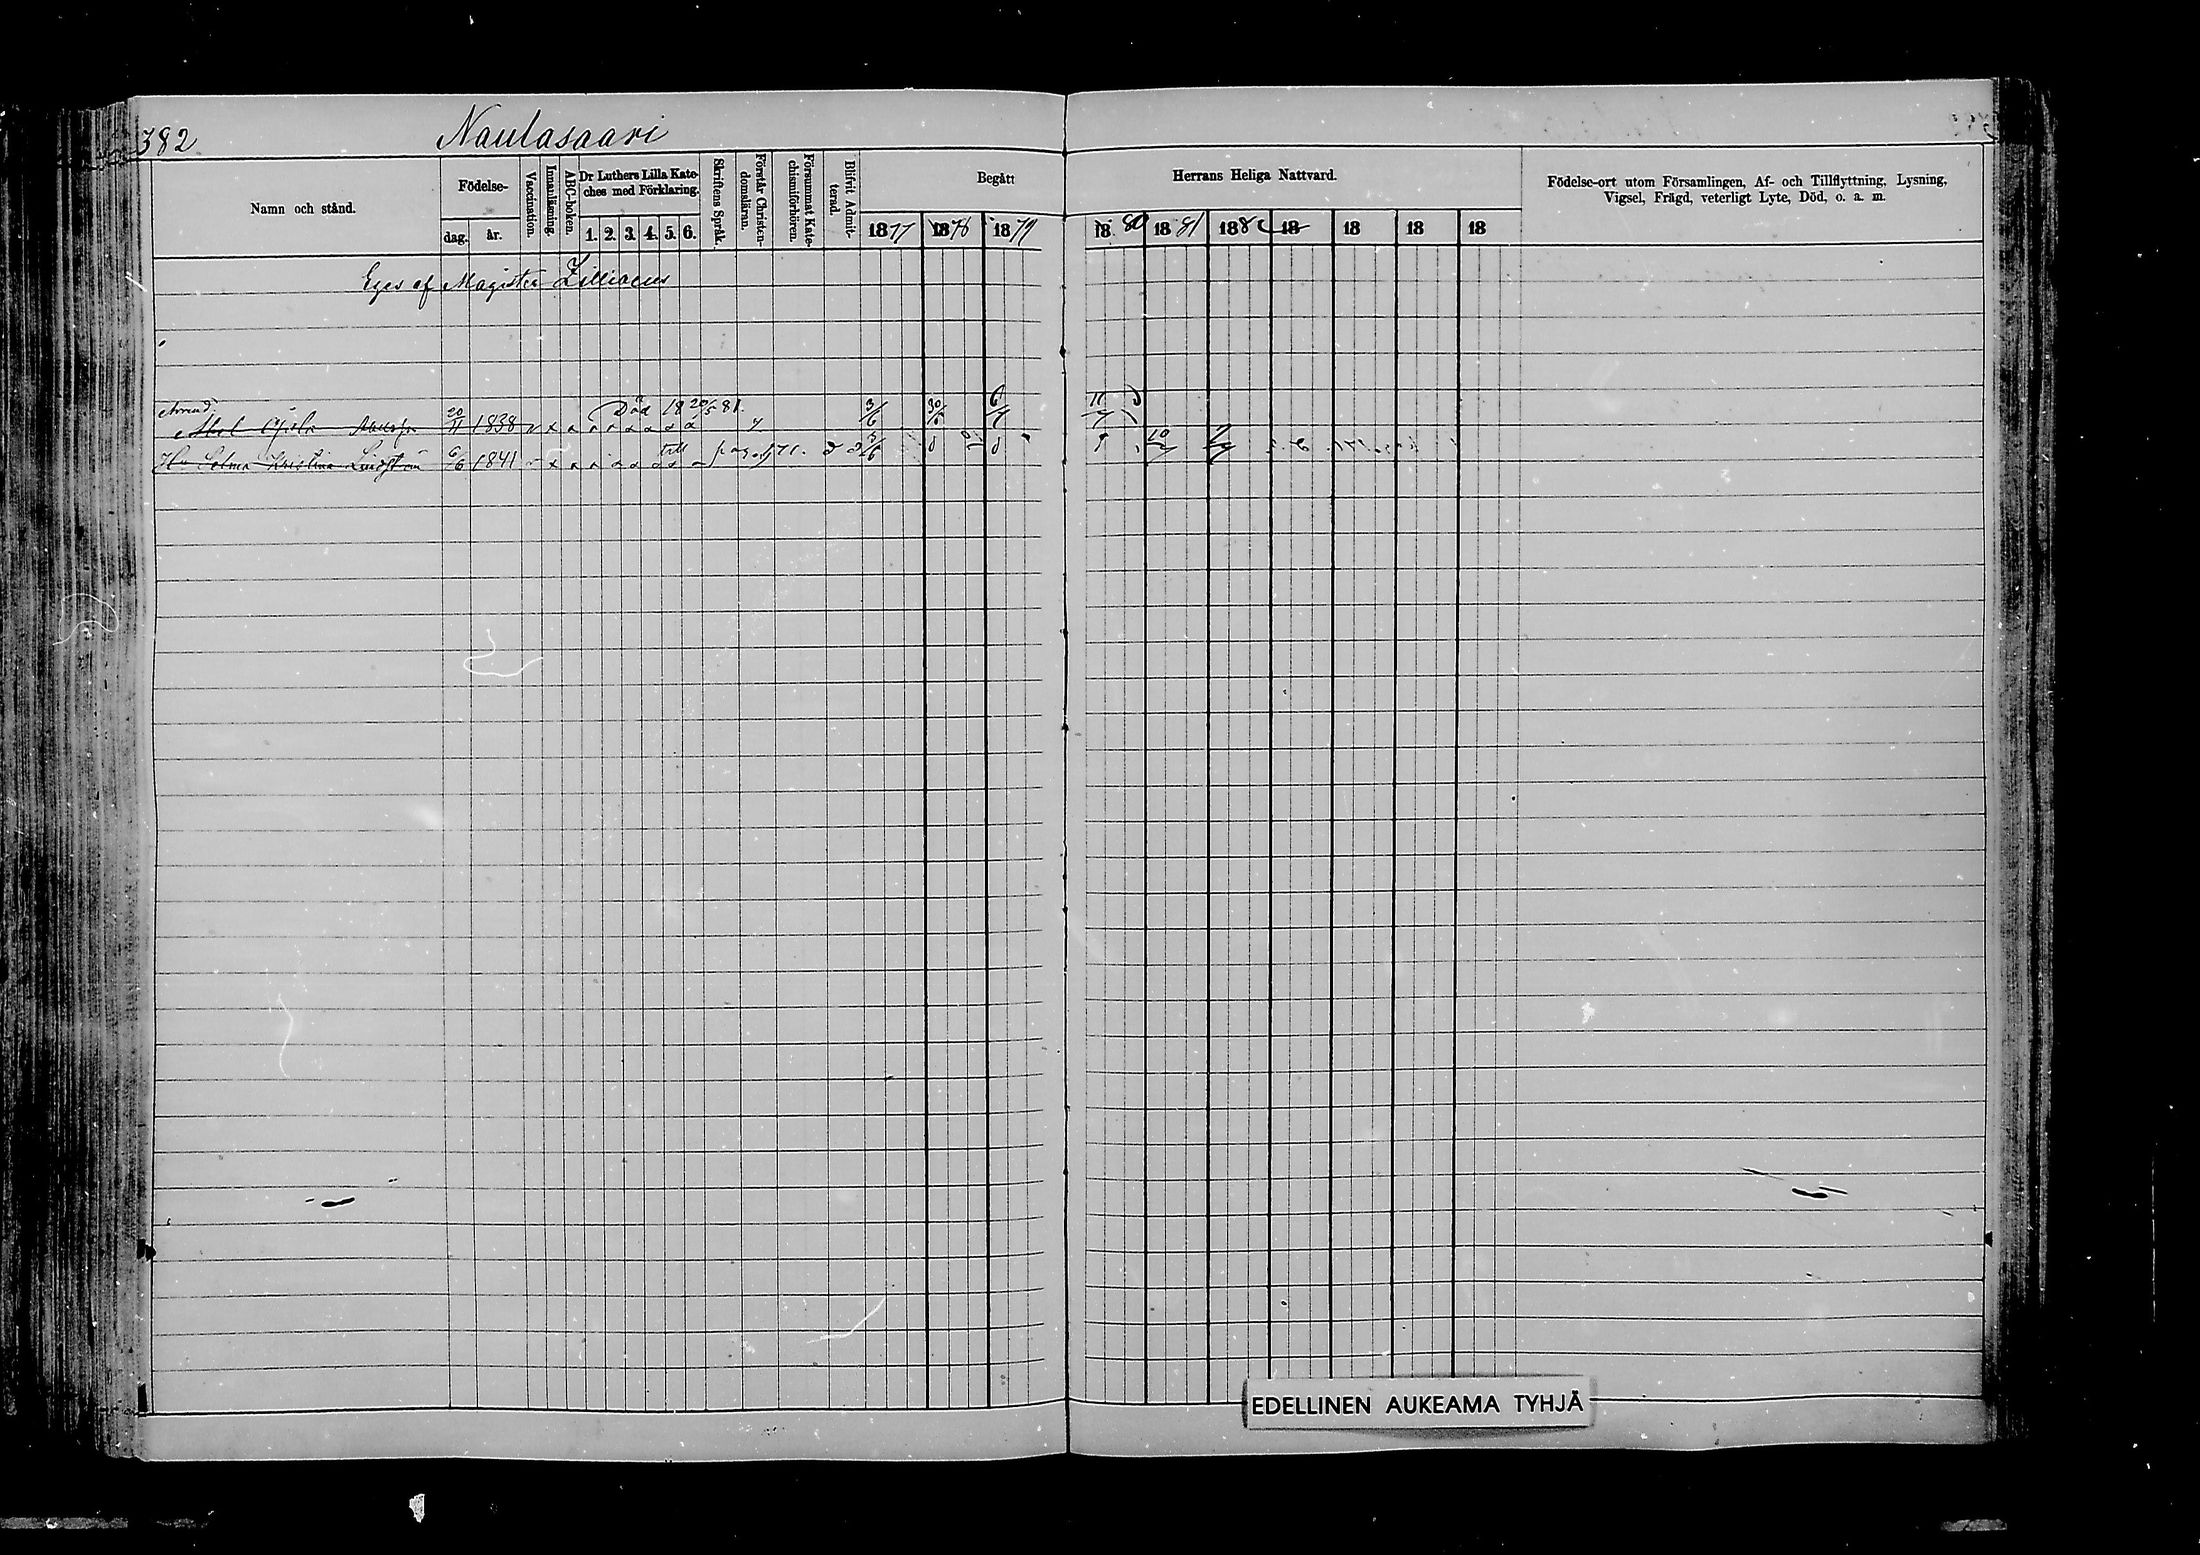 382 Naulasaari
Namn och stånd.
Födelse-
dag. år.
Vaccination.
Innanläsning.
ABC-boken.
Dr Luthers Lilla Kate-
ches med Förklaring.
1. 2. 3. 4. 5. 6.
Skriftens Språk.
Förstår Christen-
domsläran.
Försummat Kate-
chismiförhören.
Blifvit Admit-
terad.
Begått
1877 1878 1879
Herrans Heliga Nattvard.
1880 1881 1882 18 18 18 18
Födelse-ort utom Församlingen, Af- och Tillflyttning, Lysning,
Vigsel, Frägd, veterligt Lyte, Död, o. a. m.
Eges af Magister Zilliacus
Arrend.
Död 18 20/5 81.
Abel 20/11 1838 3/6 30/6 6/7 11/7
Hu Selma Kristina Lindström 6/6 1841 till pag 3/6 10/7
EDELLINEN AUKEAMA TYHJÄ